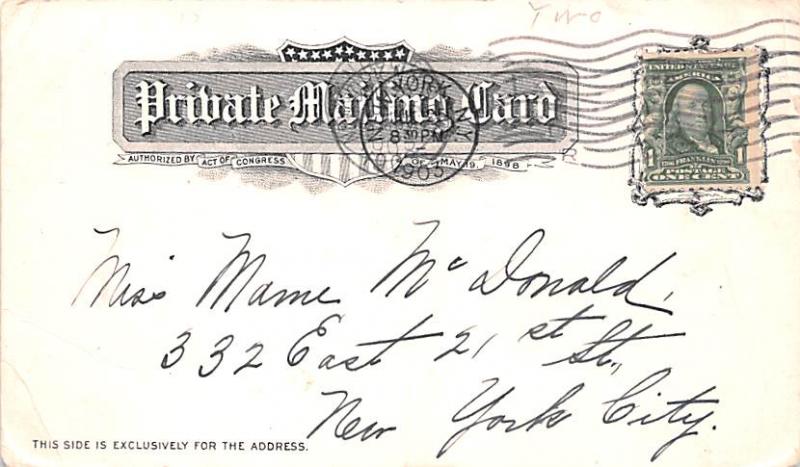 Two
Private Mailing Card
AUTHORIZED BY ACT OF CONGRESS OF MAY 19, 1898
NEW YORK, N.Y.
8 30 PM
1903
UNITED STATES OF
AMERICA
1 FRANKLIN 1
POSTAGE
ONE CENT
Miss Mame McDonald,
332 East 21st St.,
New York City.
THIS SIDE IS EXCLUSIVELY FOR THE ADDRESS.